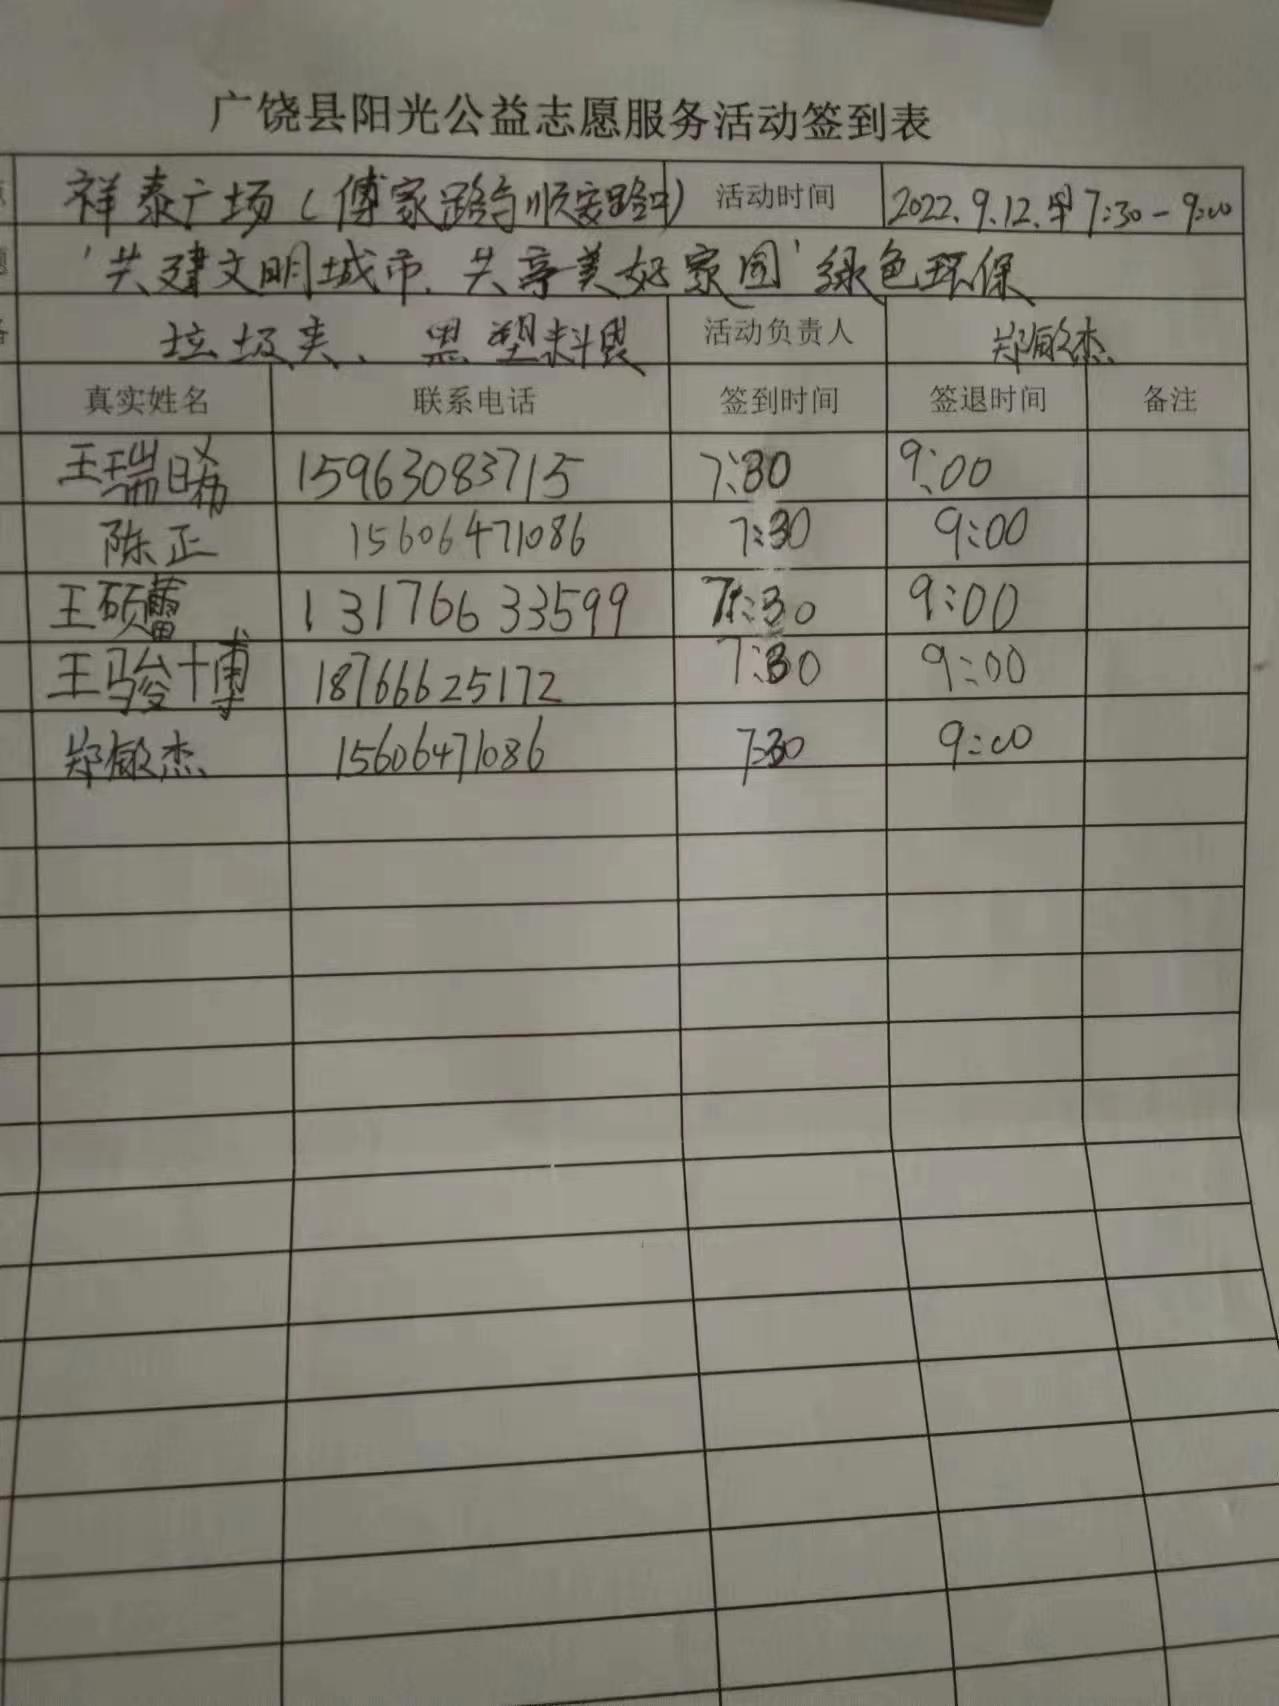 广饶县阳光公益志愿服务活动签到表
祥泰广场（傅家路与顺安路中） 活动时间 2022.9.12.早7:30-9:00
'共建文明城市、共享美好家园'绿色环保
垃圾夹、黑塑料袋 活动负责人 郑敏杰
真实姓名 联系电话 签到时间 签退时间 备注
王瑞晞 15963083715 7:30 9:00
陈正 15606471086 7:30 9:00
王硕蕾 13176633599 7:30 9:00
王骏博 18766625172 7:30 9:00
郑敏杰 15606471086 7:30 9:00